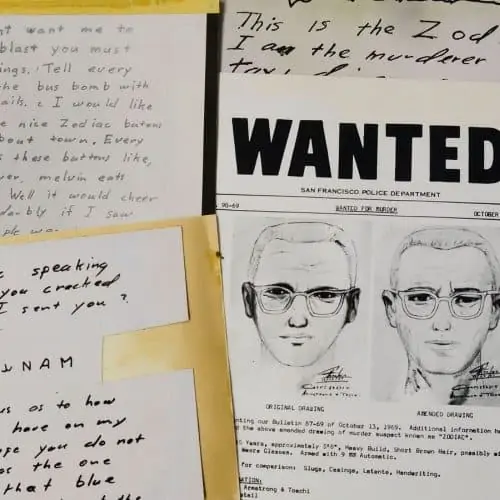 nt want me to
blast you must
ings. Tell every
the bus bomb with
ails. I would like
e nice Zodiac butons
bout town. Every
s these buttons like,
er, melvin eats
Well it would cheer
rbly if I saw
ple
This is the Zod
I am the murderer
WANTED
SAN FRANCISCO POLICE DEPARTMENT
90-69 WANTED FOR MURDER OCTOBER
speaking
you cracked
I sent you?
NAM
us as to how
have on my
you do not
the one
that blue
ORIGINAL DRAWING AMENDED DRAWING
nting our Bulletin 87-69 of October 13, 1969. Additional information ha
the above amended drawing of murder suspect known as "ZODIAC".
5 Years, approximately 5'8", Heavy Build, Short Brown Hair, possibly wi
Wears Glasses. Armed with 9 MM Automatic.
for comparison: Slugs, Casings, Latents, Handwriting.
ATION:
Armstrong & Toschi
tail